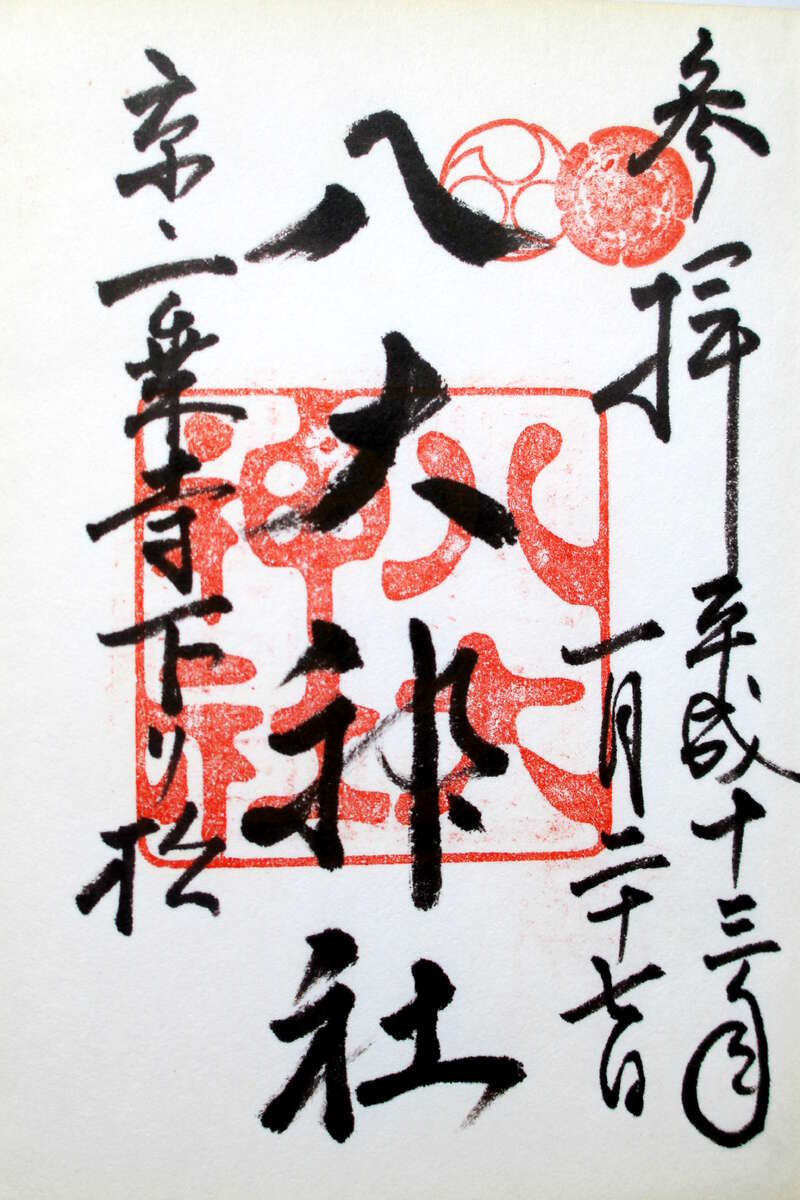 参拝 平成十三年
一月二十七日
八大神社
京、一乗寺下り松
八大
神社